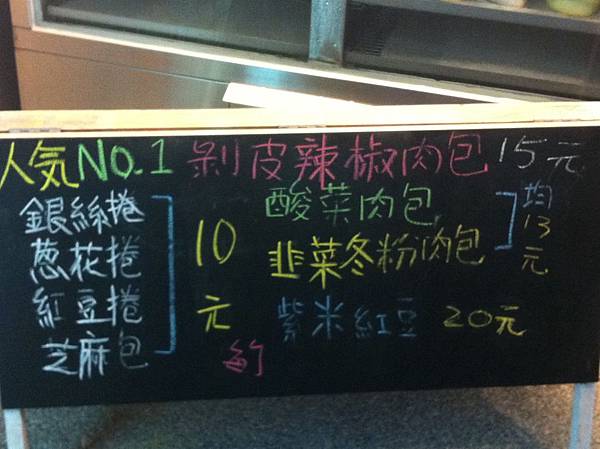 人気NO.1 剝皮辣椒肉包 15元
銀絲捲
蔥花捲
紅豆捲
芝麻包
10元
酸菜肉包
韭菜冬粉肉包
均13元
紫米紅豆 20元